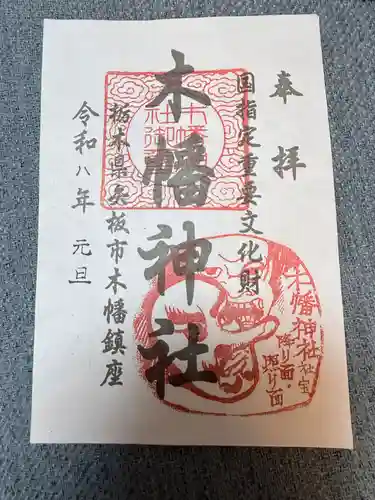 奉拝
国指定重要文化財
木幡神社
栃木県矢板市木幡鎮座
令和八年元旦
木幡神社
社宝
降り面・
照り面